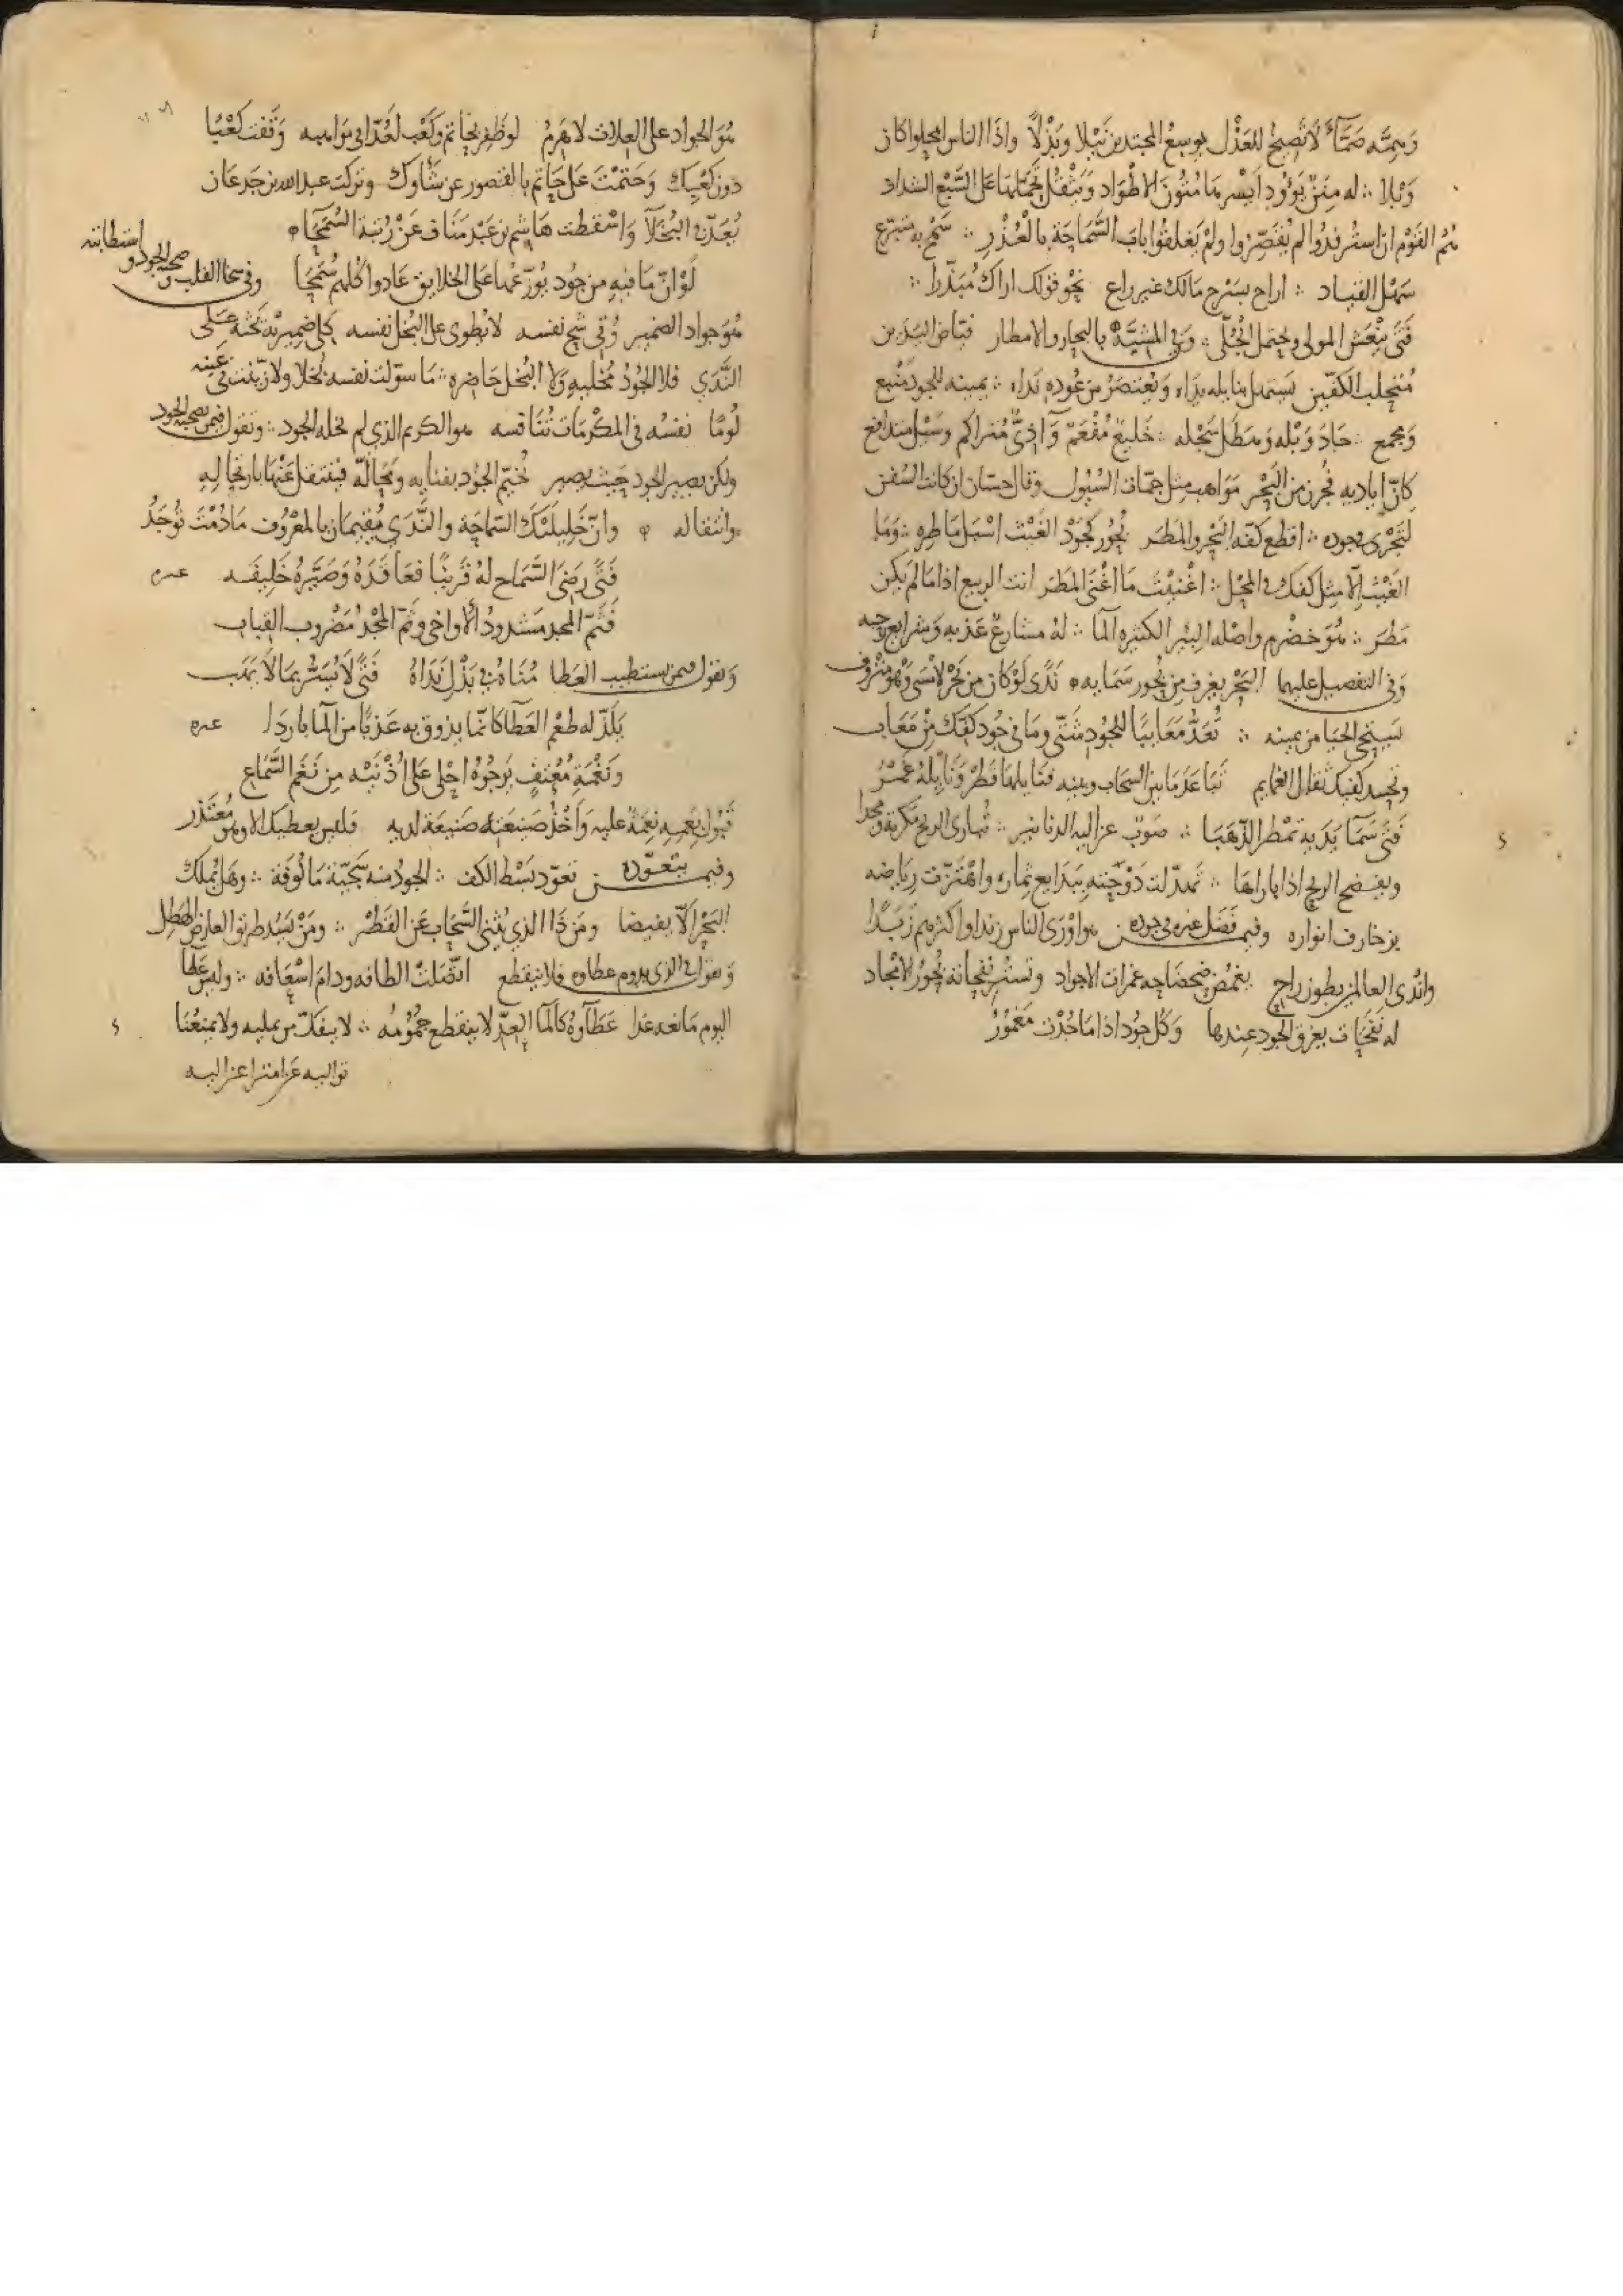 وهمته صمّاء لا تصيح للعذل يوسع المجتدين نيلا وبذلا واذا الناس امحلوا كان
وبلا ∴ له منن يؤود ايسرها متون الاطواد ويثقل تحملها على السبع الشداد
هم القوم ان استرفدوا لم يقصروا ولم يغلقوا باب السماحة بالعذر ∴ سمح به متبرع
سهل القياد ∴ اراح بسرح مالك غير راع نحو قولك اراك مبذرا ∴
فتى ينعش المولى ويحتمل الجلى وفي المشبه بالبحار والامطار فياض اليدين
متحلب الكفين يستهل بنايله يداه ويعتصر من عوده نداه ∴ يمينه للجود منبع
ومجمع ∴ جاد وبله وهطل سجله ∴ خليج مفعم وآذيّ متراكم وسيل متدافع
كان اياديه فجرن من البحر مواهب مثل جمات السيول وقال حسان ان كانت السفن
لتجرى بجوده ∴ اقطع كفه البحر والمطر بجور كجود الغيث اسبل ماطره ∴ وما
الغيث الا مثل كفك في المحل ∴ اغنيت ما اغنى المطر انت الربيع اذا ما لم يكن
مطر ∴ هو خضرم واصله البير الكثيره الما ∴ له مشارع عذبه وشرايع رحبه
وفي التفضيل عليها البحر يغرف من بحور سمايه ندى لو كان من بحر لامسى وهو منزوف
يستحي الحيا من يمينه ∴ تعد معايبا للجود شتى وما في جود كفك من معاب
وتحسد كفيك ثقال الغمايم تباعد ما بين السحاب وبينه فنايلها قطر ونايله غمر
فتى سما يديه تمطر الذهبا ∴ صوب عزاليه الدنانير ∴ تبارى الريح مكرمة ومجدا
ويفضح الريح اذا باراها ∴ تهدلت دوحته ببدايع ثماره واهتزت رياضه
بزخارف انواره وفيمن فضل غيره بجوده هو اورى الناس زندا واكثرهم زبدا
واندى العالمين بطون راح يغمض ضحضاحه غمرات الاجواد وتستر نفحاته بحور الانجاد
له نفحات يغرق الجود عندها وكل جود اذا ما جدت مغمور
هو الجواد على العلات لا هرم لو ظفر بحاتم وكعب لعدا في مواهبه وقفت كعبا
دون كعبك وختمت على حاتم بالقصور عن شاوك وتركت عبد الله بن جدعان
يعد في البخلا واسقطت هاشم بن عبد مناف عن رتبة السمحاء
لو ان ما فيه من جود يوزعها على الخلايق عادوا كلهم سمحا وفي سخا القلب وصحبة الجود واستطابته
هو جواد الضمير وقي شح نفسه لا يطوى على البخل نفسه كل ضميريه تحثه على
الندي فلا الجود مخليه ولا البخل حاضره ∴ ما سولت نفسه بخلا ولا زينت في عينه
لوما نفسه في المكرمات تنافسه هو الكريم الذي لم يخله الجود ∴ ونقول فيمن يصحبه الجود
ولكن يصير الجود حيث يصير تخيم الجود بفنايه ومحاله فينتقل عنها بارتحاله
وانتقاله وان خليليك السماحة والندي مقيمان بالمعروف ما دمت توجد
فتى رضي السماح له قرينا فعاقده وصيره خليفه غيره
فثم المجد مشدود الاواخي وثم المجد مضروب القباب
ونقول فيمن يستطيب العطا مناه في بذل نداه فتى لا يسر بما لا يهب
يلذ له طعم العطا كانما يذوق به عذبا من الما باردا غيره
ونغمة معتف يرجوه احلى على اذنيه من نغم السماع
قبول نعمه نعمة عليه واخذ صنيعته صنيعة لديه فليس يعطيك الا وهو معتذر
وفيمن يتعوده تعود بسط الكف ∴ الجود منه سجيّة مالوفة ∴ وهل يملك
البحر الّا يفيضا ومن ذا الذي يثني السحاب عن القطر ∴ ومن يسد طريق العارض الهطل
ونقول في الذي يدوم عطاوه فلا ينقطع اتصلت الطافه ودام اسعافه ∴ وليس عطا
اليوم مانعه غدا عطاوه كالما العد لا ينقطع جمومه ∴ لا ينفك من يمليه ولا يمنعنا
تواليه عن امترا عزاليه